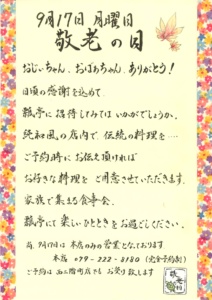 9月17日 月曜日
敬老の日
おじいちゃん、おばあちゃん、ありがとう!
日頃の感謝を込めて
瓢亭に招待してみてはいかがでしょうか。
純和風の店内で伝統の料理を…
ご予約時にお伝え頂ければ
お好きな料理をご用意させていただきます。
家族で集う食事会
瓢亭にて楽しいひとときをお過ごしください。
尚、9月17日は本店のみの営業となっております
本店 099-222-8180 (完全予約制)
ご予約は 町店でもお受け致します